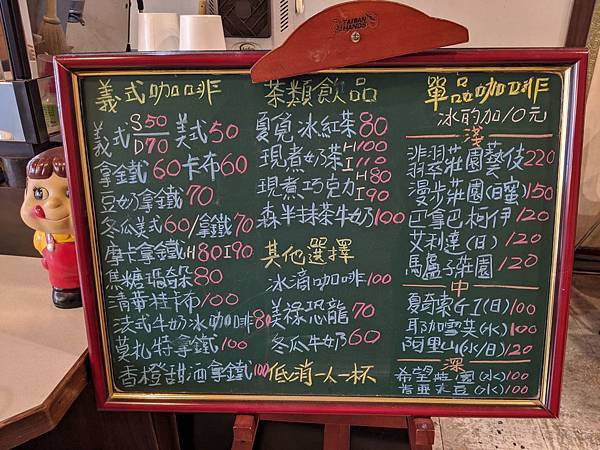 TAIWAN HANDS
義式咖啡
義式 S50 D70 美式50
拿鐵60 卡布60
豆奶拿鐵70
冬瓜美式60/拿鐵70
摩卡拿鐵H80 I90
焦糖瑪奇朵80
清華特卡布100
法式牛奶冰咖啡80
莫札特拿鐵100
香橙甜酒拿鐵100
茶類飲品
夏覓冰紅茶80
現煮奶茶H100 I110
現煮巧克力H80 I90
森半抹茶牛奶100
其他選擇
冰滴咖啡100
美祿恐龍70
冬瓜牛奶60
低消一人一杯
單品咖啡
冰的加10元
淺
翡翠莊園藝伎220
漫步莊園(日蜜)150
巴拿巴柯伊120
艾利達(日)120
馬盧子莊園120
中
夏奇索G-1(日)100
耶加雪菲(水)100
阿里山(水/日)120
深
希望莊園(水)100
(水)100